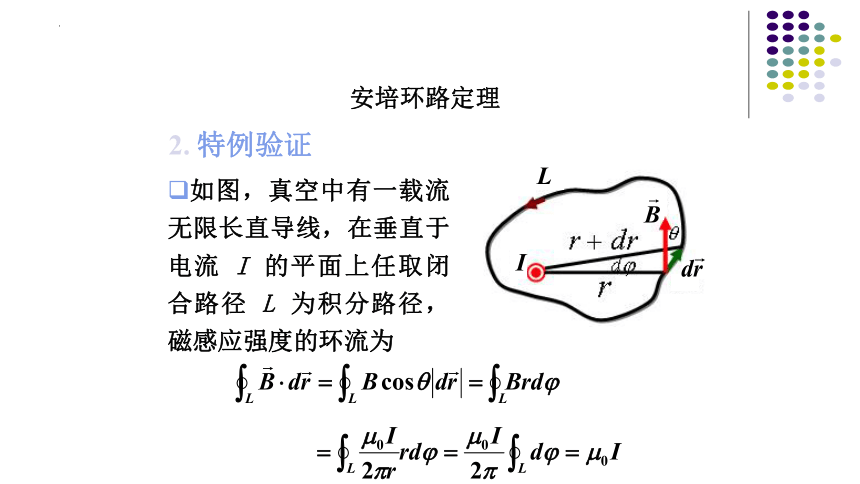 安培环路定理
2. 特例验证
❑如图，真空中有一载流
无限长直导线，在垂直于
电流 I 的平面上任取闭
合路径 L 为积分路径，
磁感应强度的环流为
L
B⃗
θ
r + dr
I
dφ
dr⃗
r
∮_L B⃗·dr⃗ = ∮_L B cosθ|dr⃗| = ∮_L Brdφ
= ∮_L μ₀I/2πr rdφ = μ₀I/2π ∮_L dφ = μ₀I